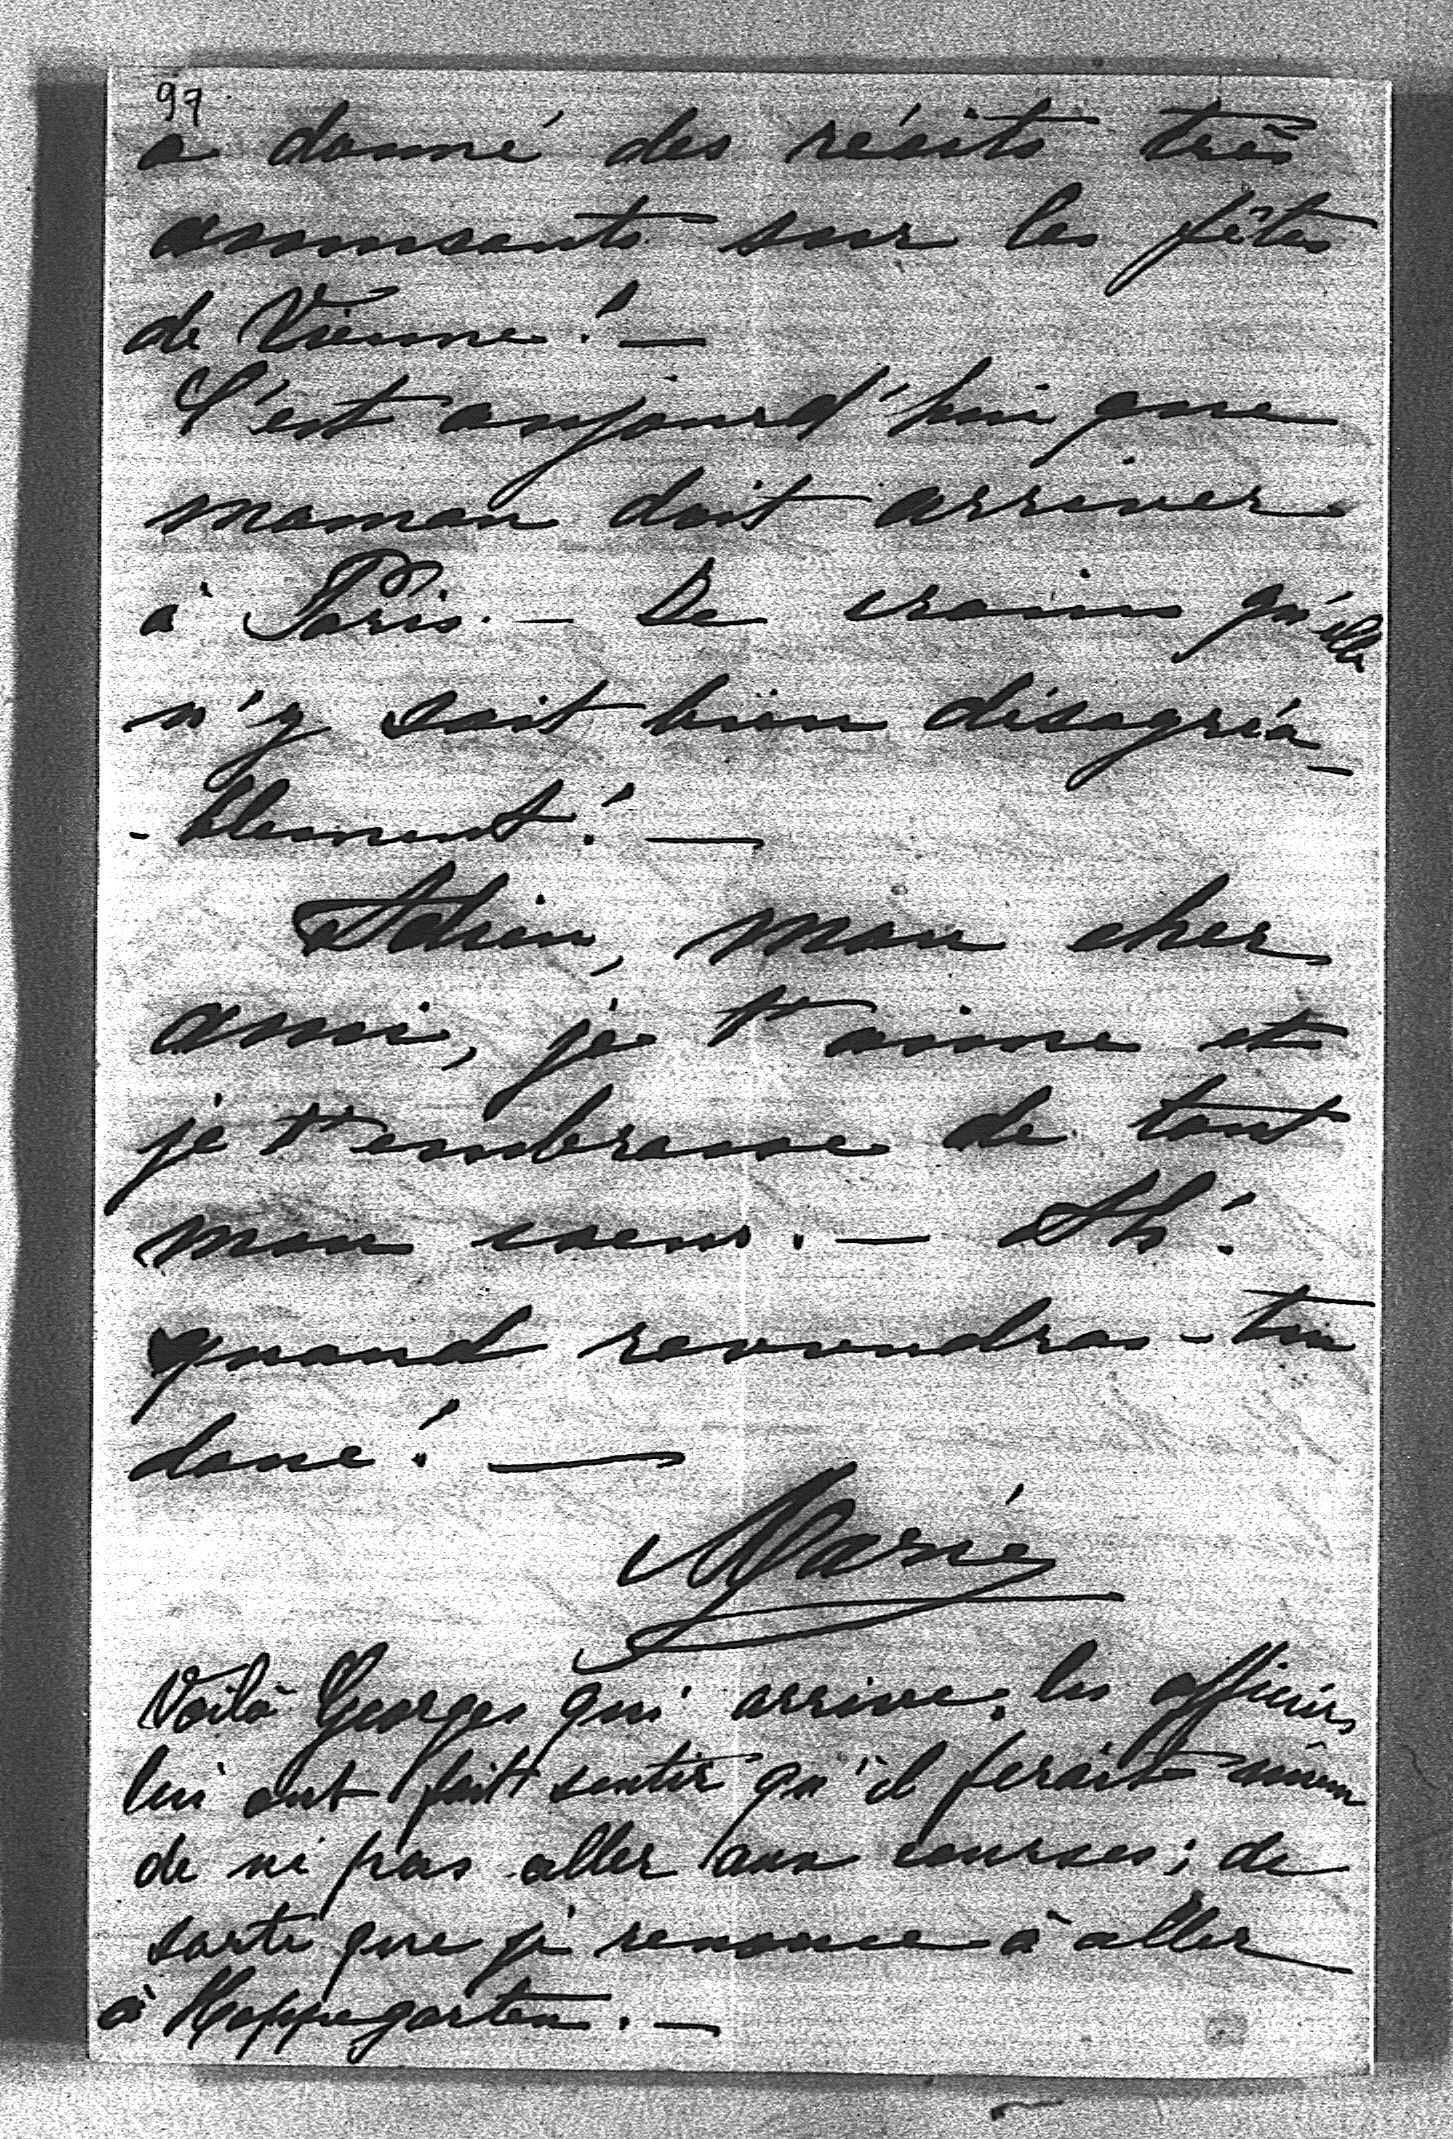 97
a donné des récits très
amusants sur les fêtes
de Vienne! —
C'est aujourd'hui que
maman doit arriver
à Paris. — Je crains qu'elle
n'y soit bien désagréa-
-blement! —
Adieu, mon cher
ami, je t'aime et
je t'embrasse de tout
mon coeur. — Ah!
quand reviendras-tu
donc! —
Marie
Voilà Georges qui arrive, les officiers
lui ont fait sentir qu'il ferait mieux
de ne pas aller aux courses; de
sorte que je renonce à aller
à Hoppegarten. —